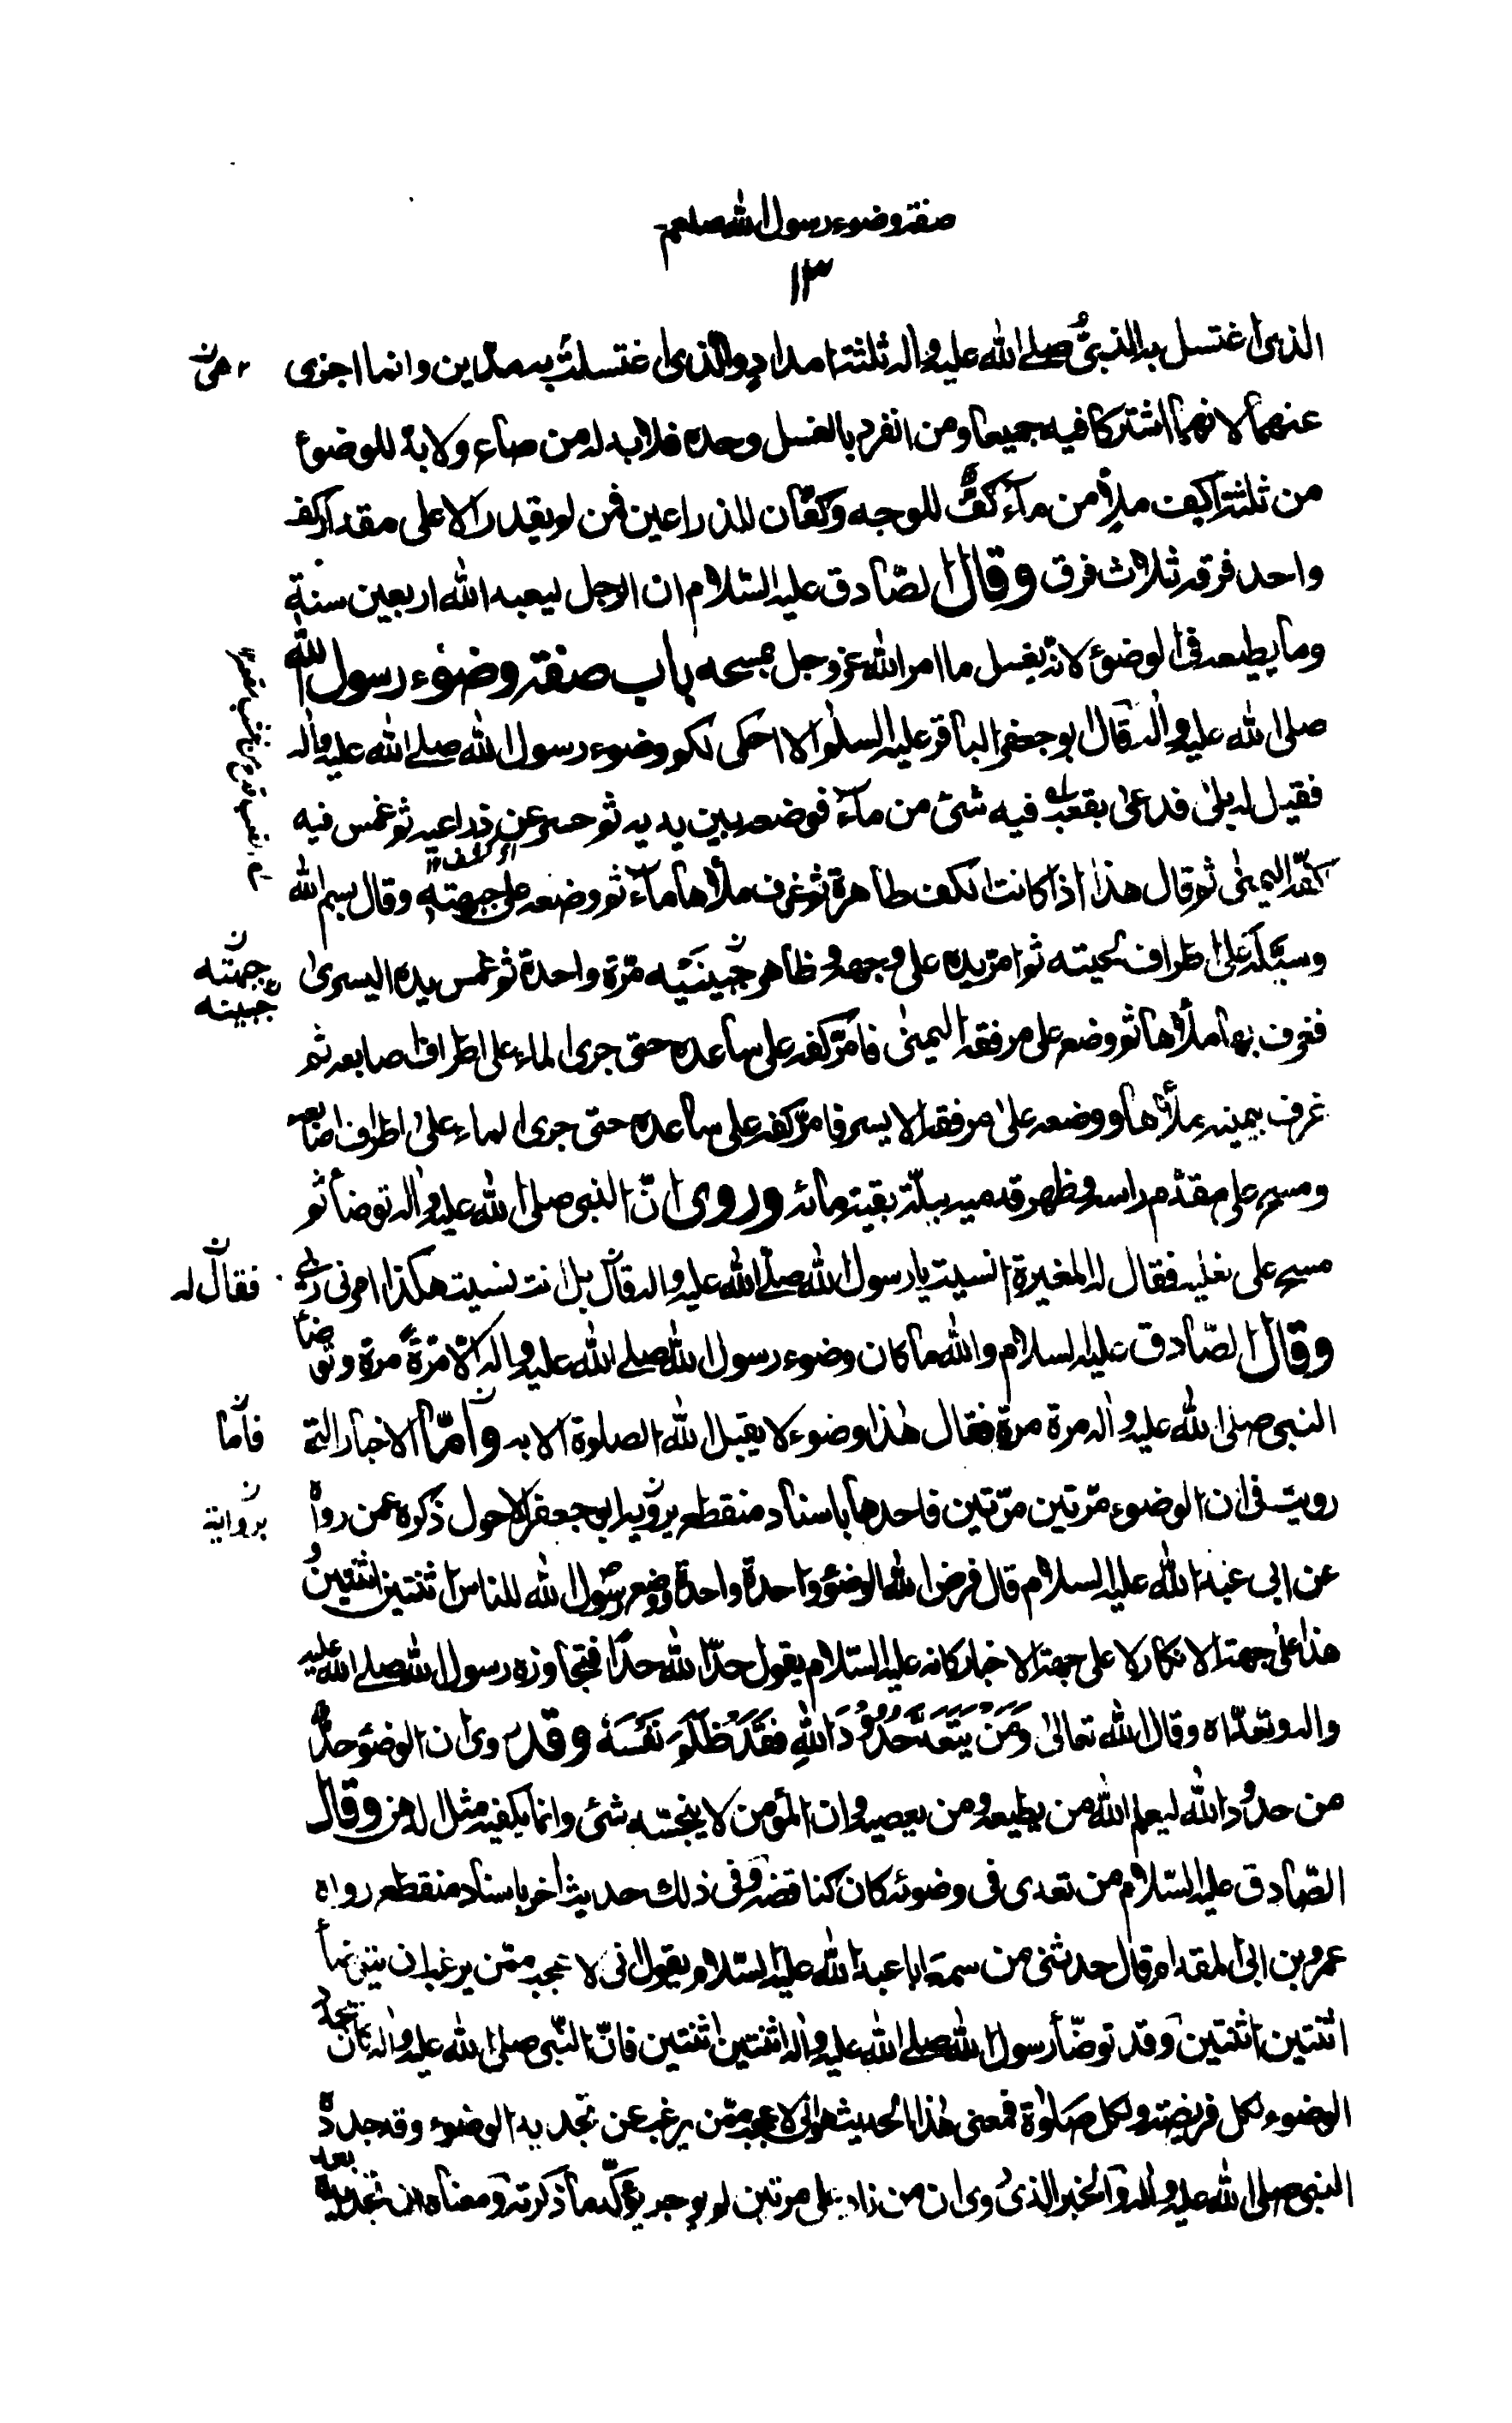 صفة وضوء رسول الله صلعم
١٣
الذى اغتسل به النبىّ صلى الله عليه واله ثلثة امداد والذى اغتسلت به مدّين وانما اجزى
هى ن
عنهما لانهما اشتركا فيه جميعا ومن انفرد بالغسل وحده فلا بد له من صاع ولا بد للوضوء
من ثلثة اكف ملأ من ماء كفٌّ للوجه وكفّان للذراعين فمن لم يقدر الا على مقدار كف
واحد فرقه ثلاث فرق وقال الصّادق عليه السّلام ان الرجل ليعبد الله اربعين سنة
وما يطيعه فى الوضوء لانه يغسل ما امر الله عز وجل بمسحه باب صفة وضوء رسول الله
صلى الله عليه واله قال ابو جعفر الباقر عليه السلام الا احكى لكم وضوء رسول الله صلى الله عليه واله
فقيل له بلى فدعى بقعب فيه شئ من ماء فوضعه بين يديه ثم حسر عن ذراعيه ثم غمس فيه
كفّه اليمنى ثم قال هذا اذا كانت الكف طاهرة ثم غرف ملأها ماء ثم وضعه على جبهته وقال بسم الله
وسيّله على اطراف لحيته ثم امرّ يده على وجهه وظاهر جبينيه مرّة واحدة ثم غمس يده اليسرى
جبهته ن
جبينه
فغرف بها ملأها ثم وضعه على مرفقه اليمنى فامرّ كفه على ساعده حتى جرى الماء على اطراف اصابعه ثم
غرف بيمينه ملأها ووضعه على مرفقه الايسر فامرّ كفه على ساعده حتى جرى الماء على اطراف اصابعه
ومسح على مقدّم راسه وظهر قدميه ببلّة بقية مائه وروى انّ النبى صلى الله عليه واله توضأ ثم
مسح على نعليه فقال له المغيرة انسيت يا رسول الله صلّى الله عليه واله قال بل انت نسيت هكذا امرنى ربّى
فقال له ن
وقال الصّادق عليه السلام والله ما كان وضوء رسول الله صلى الله عليه واله الّا مرّةً مرّة وتوضأ
النبى صلى الله عليه واله مرة مرة فقال هذا وضوء لا يقبل الله الصلوة الا به وامّا الاخبار التى
فامّا ن
رويت فى ان الوضوء مرّتين مرّتين فاحدها باسناد منقطع يرويه ابو جعفر الاحول ذكره عمن رواه
برواية ن
عن ابى عبد الله عليه السلام قال فرض الله الوضوء واحدة واحدة ووضع رسول الله للناس اثنتين اثنتين
هذا على جهة الانكار لا على جهة الاخبار كانه عليه السّلام يقول حدّ الله حدّا فتجاوزه رسول الله صلى الله عليه
واله وتعدّاه وقال الله تعالى وَمَنْ يَتَعَدَّ حُدُودَ اللهِ فَقَدْ ظَلَمَ نَفْسَهُ وقد روى ان الوضوء حدٌّ
من حدود الله ليعلم الله من يطيعه ومن يعصيه وان المؤمن لا ينجّسه شئ وانما يكفيه مثل الدهن وقال
الصّادق عليه السّلام من تعدى فى وضوئه كان كناقضه وفى ذلك حديث اخر باسناد منقطع رواه
عمرو بن ابى المقدام قال حدثنى من سمع ابا عبد الله عليه السّلام يقول انى لاعجب ممّن يرغب ان يتوضأ
اثنتين اثنتين وقد توضّأ رسول الله صلى الله عليه واله اثنتين اثنتين فانّ النّبى صلى الله عليه واله كان يجدّد
الوضوء لكل فريضة ولكل صلوة فمعنى هذا الحديث هو انى لاعجب ممّن يرغب عن تجديد الوضوء وقد جدده
النبى صلى الله عليه واله والخبر الذى روى ان من زاد على مرتين لم يوجر يؤكّد ما ذكرته ومعناه ان تجديده بعد